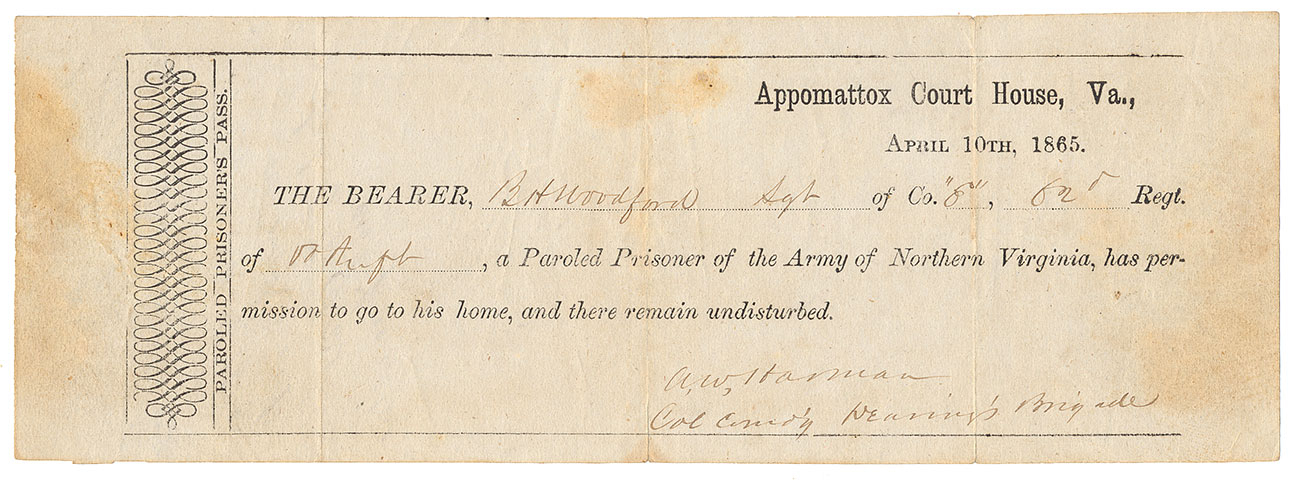 PAROLED PRISONER'S PASS.
Appomattox Court House, Va.,
APRIL 10TH, 1865.
THE BEARER, B H Woodford Sgt of Co. , 62d Regt.
of Va , a Paroled Prisoner of the Army of Northern Virginia, has per-
mission to go to his home, and there remain undisturbed.
A. W. Harman
Col Comd'g Dearing's Brigade